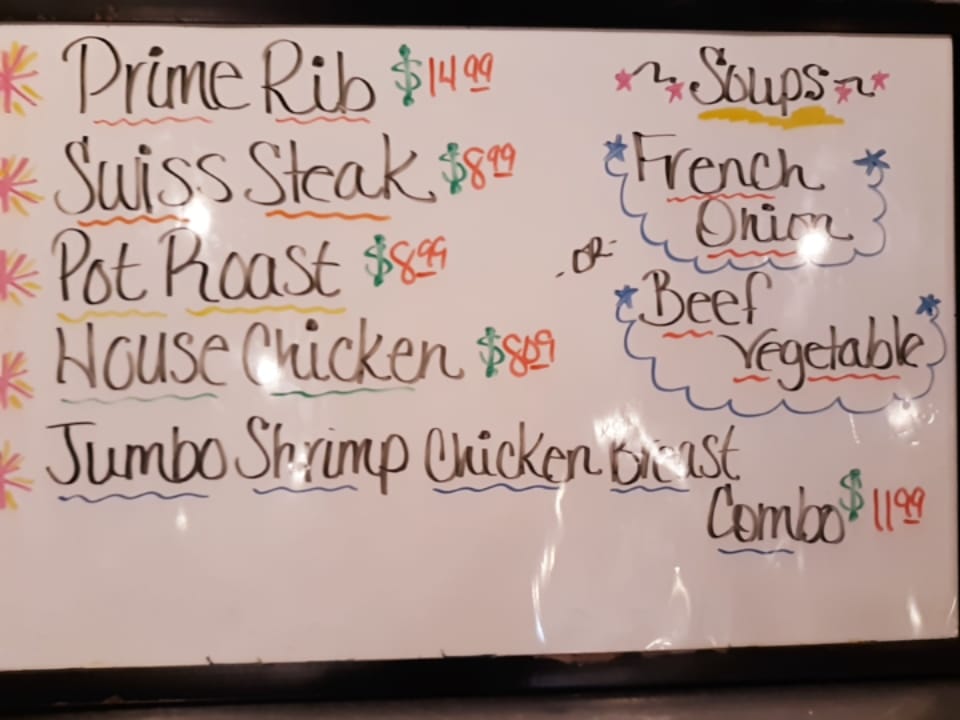 Prime Rib $14.99
Swiss Steak $8.99
Pot Roast $8.99
House Chicken $8.09
Jumbo Shrimp Chicken Breast
Combo $11.99
~Soups~
French
Onion
-or-
Beef
Vegetable